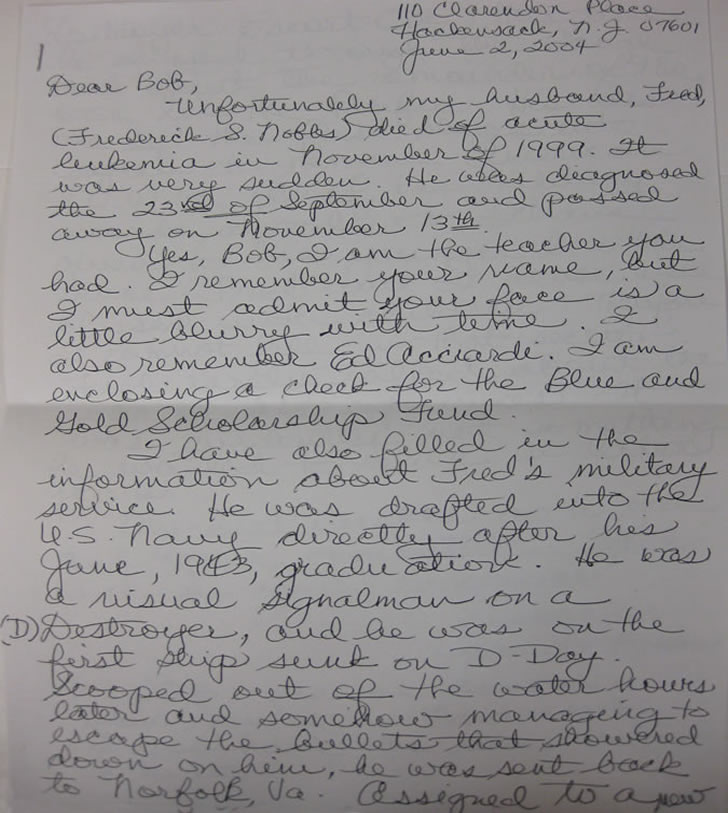 110 Clarendon Place
Hackensack, N.J. 07601
June 2, 2004
1
Dear Bob,
Unfortunately my husband, Fred,
(Frederick S. Nobles) died of acute
leukemia in November of 1999. It
was very sudden. He was diagnosed
the 23rd of September and passed
away on November 13th.
Yes, Bob, I am the teacher you
had. I remember your name, but
I must admit your face is a
little blurry with time. I
also remember Ed Acciardi. I am
enclosing a check for the Blue and
Gold Scholarship Fund.
I have also filled in the
information about Fred's military
service. He was drafted into the
U.S. Navy directly after his
June, 1943, graduation. He was
a visual signalman on a
(D) Destroyer, and he was on the
first ship sunk on D-Day.
Scooped out of the water hours
later and somehow managing to
escape the bullets that showered
down on him, he was sent back
to Norfolk, Va. Assigned to a new